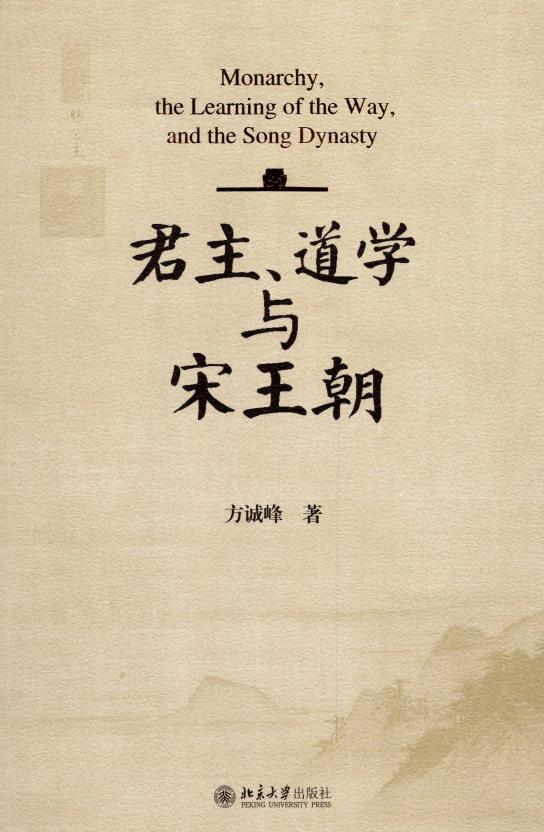 Monarchy,
the Learning of the Way,
and the Song Dynasty
君主、道学
与
宋王朝
方诚峰 著
北京大学出版社
PEKING UNIVERSITY PRESS